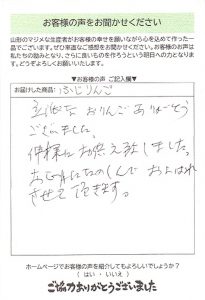 お客様の声をお聞かせください
山形のマジメな生産者がお客様の幸せを願いながら心を込めて作った一品でございます。ぜひ率直なご感想をお聞かせください。お客様のお声は
私たちの励みとなり、さらに良いものを作ろうという明日への力となります。どうぞよろしくお願いいたします。
▼お客様の声 ご記入欄▼
お届けした商品：ふじりんご
立派な おりんご ありがとう
ございました。
供様にお供え致しました。
お正月にたのしんで およばれ
させて 頂きます。
ホームページでお客様の声を紹介してもよろしいでしょうか？
（ はい ・ いいえ ）
ご協力ありがとうございました